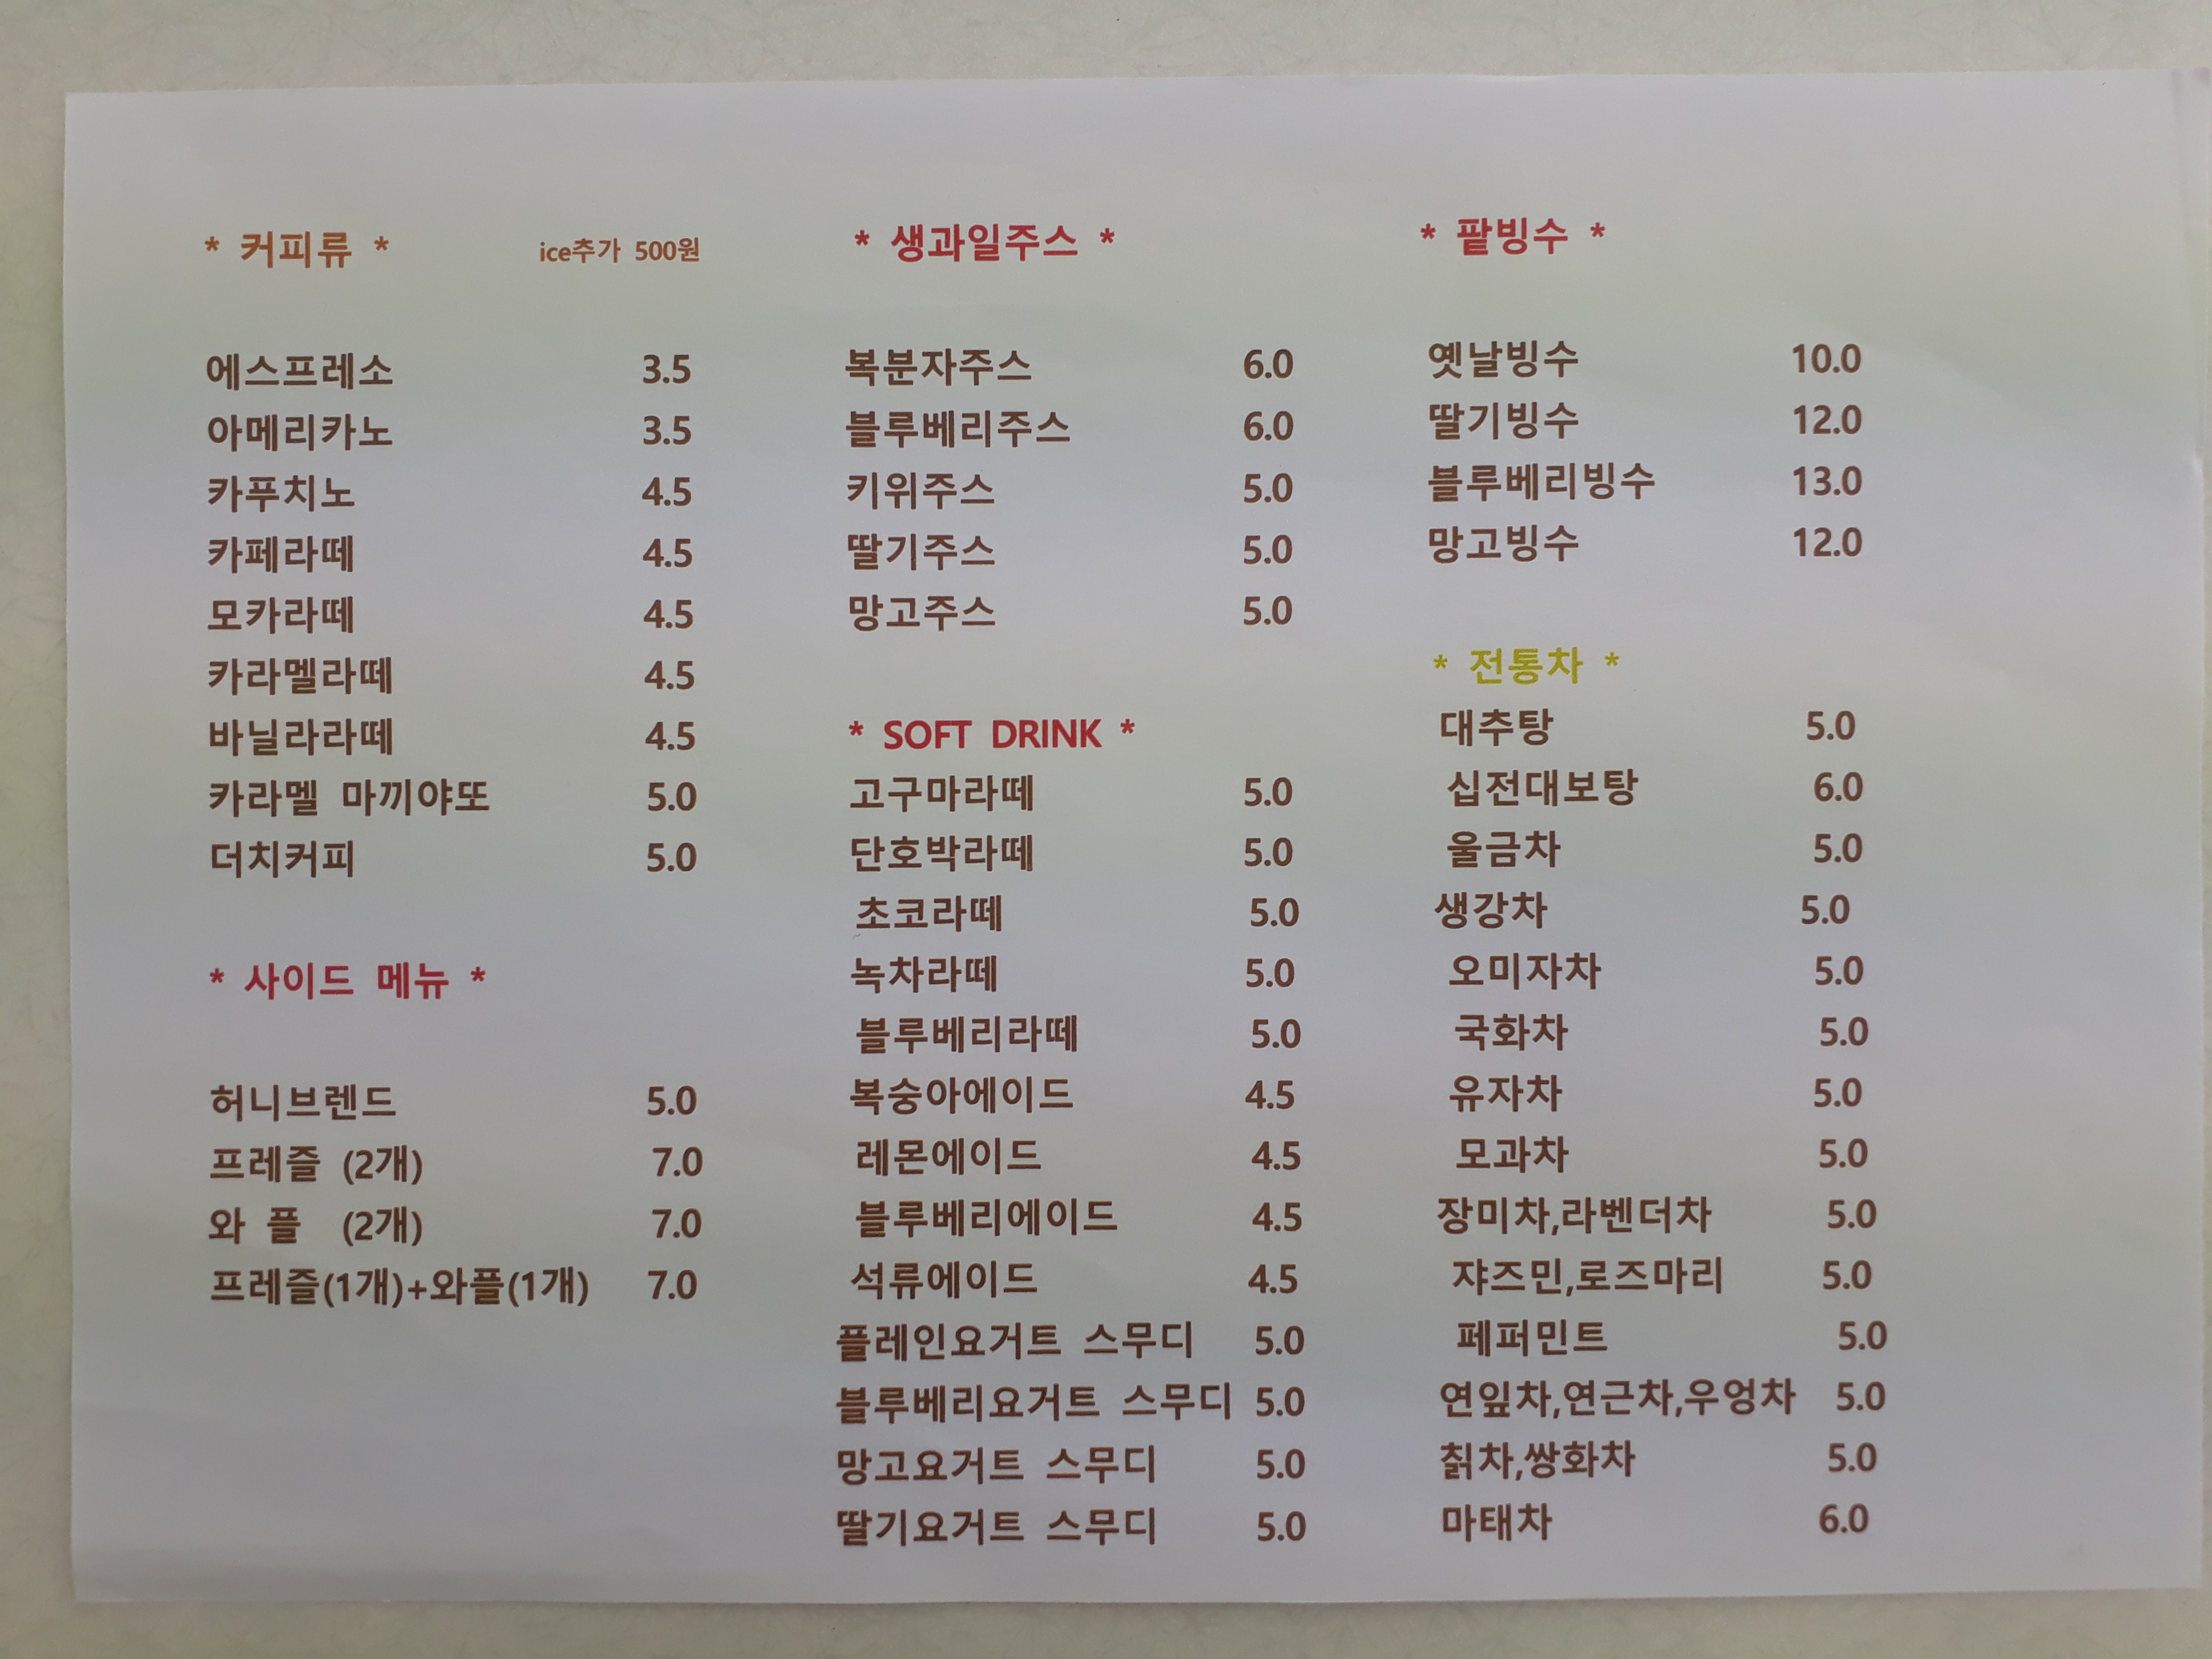 * 커피류 * ice추가 500원
에스프레소 3.5
아메리카노 3.5
카푸치노 4.5
카페라떼 4.5
모카라떼 4.5
카라멜라떼 4.5
바닐라라떼 4.5
카라멜 마끼야또 5.0
더치커피 5.0
* 사이드 메뉴 *
허니브렌드 5.0
프레즐 (2개) 7.0
와 플 (2개) 7.0
프레즐(1개)+와플(1개) 7.0
* 생과일주스 *
복분자주스 6.0
블루베리주스 6.0
키위주스 5.0
딸기주스 5.0
망고주스 5.0
* SOFT DRINK *
고구마라떼 5.0
단호박라떼 5.0
초코라떼 5.0
녹차라떼 5.0
블루베리라떼 5.0
복숭아에이드 4.5
레몬에이드 4.5
블루베리에이드 4.5
석류에이드 4.5
플레인요거트 스무디 5.0
블루베리요거트 스무디 5.0
망고요거트 스무디 5.0
딸기요거트 스무디 5.0
* 팥빙수 *
옛날빙수 10.0
딸기빙수 12.0
블루베리빙수 13.0
망고빙수 12.0
* 전통차 *
대추탕 5.0
십전대보탕 6.0
울금차 5.0
생강차 5.0
오미자차 5.0
국화차 5.0
유자차 5.0
모과차 5.0
장미차,라벤더차 5.0
쟈즈민,로즈마리 5.0
페퍼민트 5.0
연잎차,연근차,우엉차 5.0
칡차,쌍화차 5.0
마태차 6.0